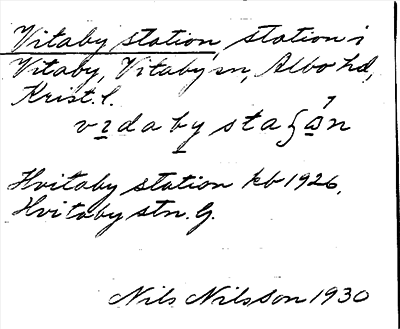 Vitaby station, station i
Vitaby, Vitaby sn, Albo hd,
Krist. l.
Hvitaby station kb 1926.
Hvitaby stn. G.
Nils Nilsson 1930